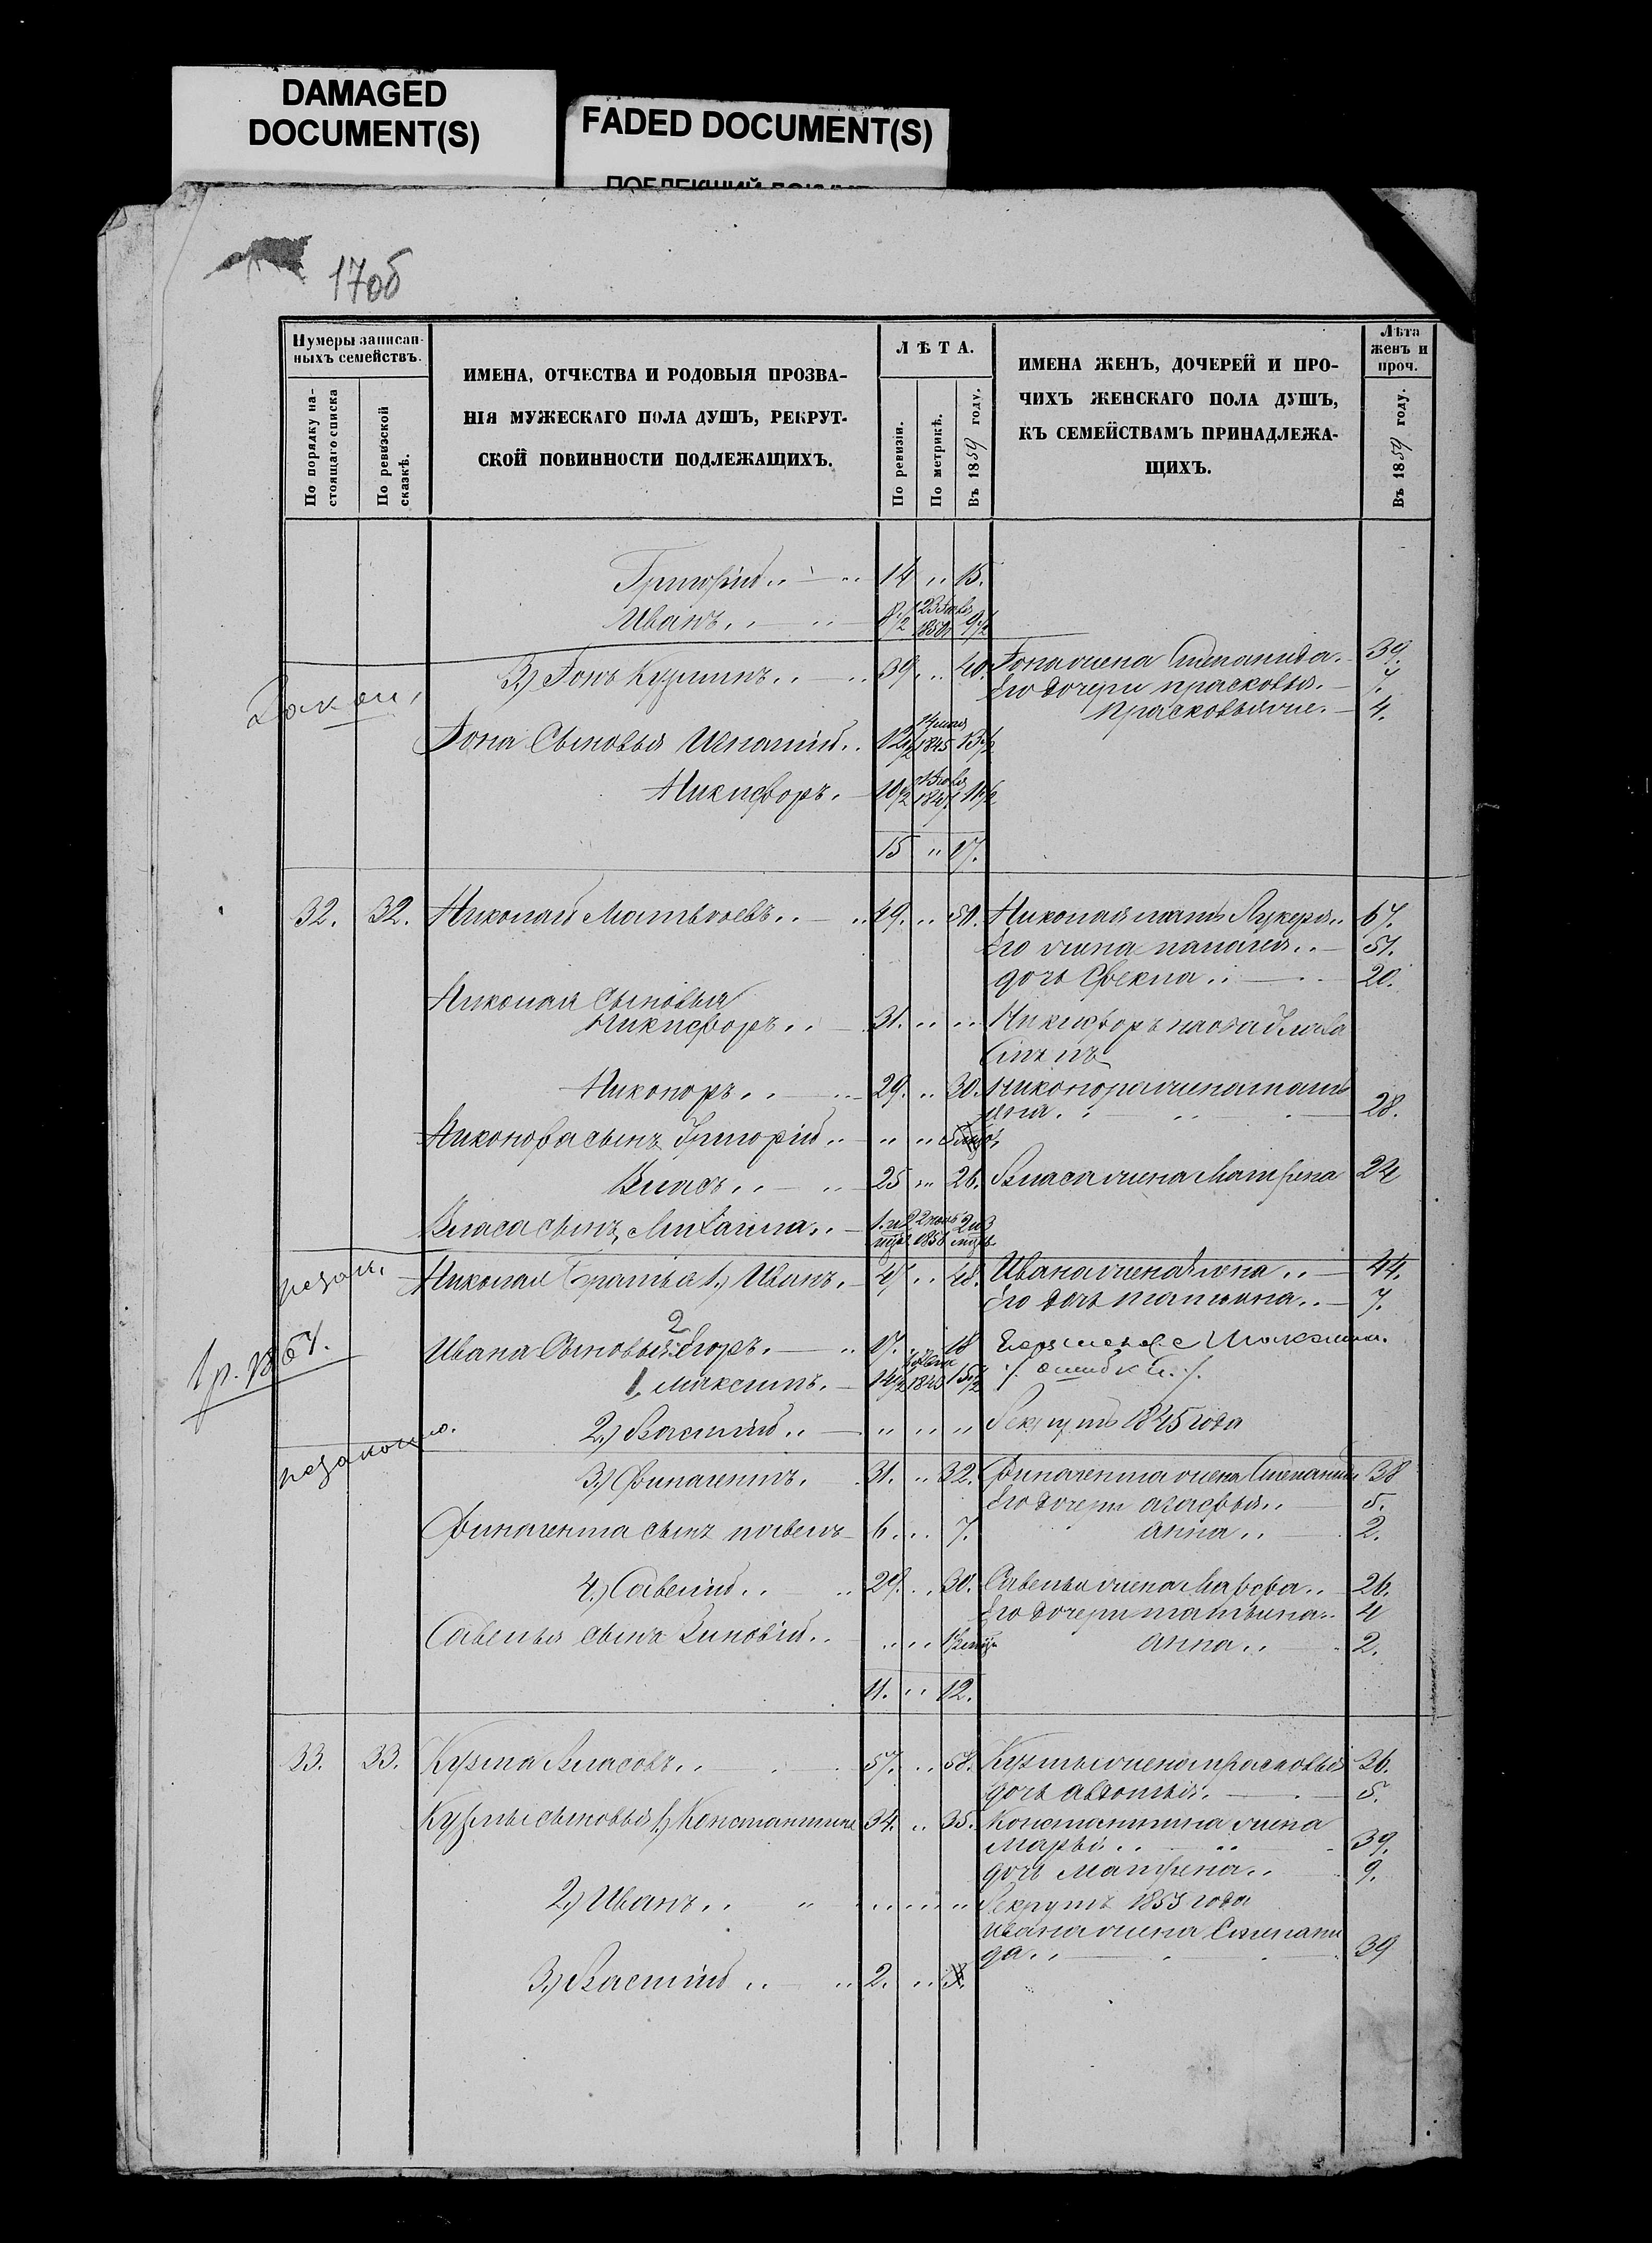 DAMAGED
DOCUMENT(S)
FADED DOCUMENT(S)
17об
Нумеры записан-
ныхъ семействъ.
По порядку на-
стоящаго списка
По ревизской
сказкѣ.
ИМЕНА, ОТЧЕСТВА И РОДОВЫЯ ПРОЗВА-
НІЯ МУЖЕСКАГО ПОЛА ДУШЪ, РЕКРУТ-
СКОЙ ПОВИННОСТИ ПОДЛЕЖАЩИХЪ.
ЛѢТА.
По ревизіи.
По метрикѣ.
Въ 1859 году.
ИМЕНА ЖЕНЪ, ДОЧЕРЕЙ И ПРО-
ЧИХЪ ЖЕНСКАГО ПОЛА ДУШЪ,
КЪ СЕМЕЙСТВАМЪ ПРИНАДЛЕЖА-
ЩИХЪ.
Лѣта
женъ и
проч.
Въ 1859 году.
Григорій 14 15.
Иванъ 8½ 9½
3.) Іонъ Кузминъ 39 40. Іона жена Степанида 39.
Его дочери прасковья 7.
Прасковья же 4.
Іона Сыновья Игнатій 12½ 1845 13½
Никифоръ 10½ 1847 11½
15 17.
32. 32. Николай Матвѣевъ 49. 50. Николая мать Лукерья 67.
Его жена пелагея 51.
дочь Фекла 20.
Николая сыновья
Никифоръ 31. Никифоръ
Никоноръ 29. 30. Никонора жена тать
яна 28.
Никонора сынъ Григорій
Власъ 25 26. Власа жена Матрена 24
Власа сынъ Михаила
Николая братья 1.) Иванъ 47 48. Ивана жена 44.
Его дочь татьяна 7.
2
Ивана Сыновья: Егоръ 17. 18
1р. 1864.
1, Максимъ 14½ 1843 15½ /. ошибкой ./.
2.) Василій Рекрутъ 1845 года
3.) Финагентъ 31. 32. Финагента жена Степанида 38
Его дочери агафья 5.
Финагента сынъ павелъ 6. 7. анна 2.
4.) Савелій 29. 30. Савелья жена Марфа 26.
Его дочери татьяна 4
Савелья сынъ Зиновій анна 2.
11. 12.
33. 33. Кузма Власовъ 57. 58. Кузмы жена прасковья 36.
дочь авдотья 5.
Кузмы сыновья 1.) Константинъ 34. 35. Константина жена
Марья 39.
дочь Матрена 9.
2.) Иванъ Рекрутъ 1853 года
Ивана жена Степани
да 39
3.) Василій 2. 3.